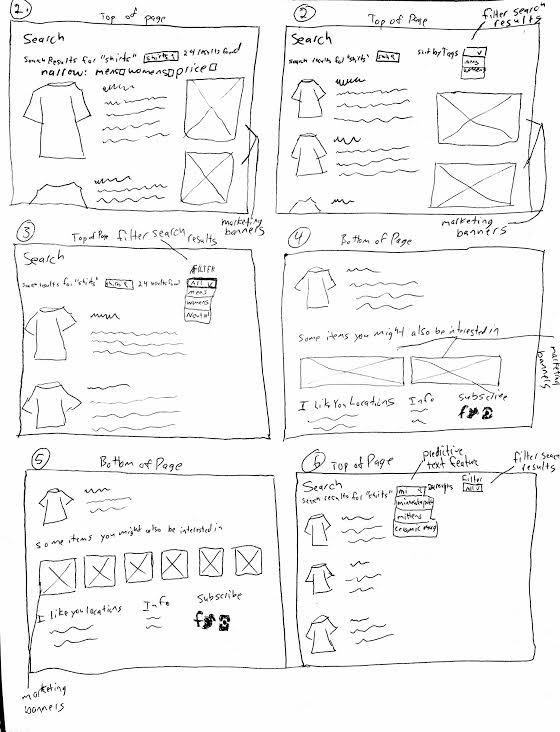 1.
Top of page
Search
Search Results for "shirts" shirts 24 results found
narrow: mens womens price
marketing banners
2
Top of Page
filter search results
Search
search results for "shirts" shirts
sort by Tags
mens
womens
marketing banners
3
Top of Page
filter search results
Search
FILTER
search results for "shirts" shirts 24 results found
All
mens
womens
Neutral
4
Bottom of Page
Some items you might also be interested in
marketing banners
I Like You Locations
Info
Subscribe
f
5
Bottom of Page
some items you might also be interested in
I like you locations
Info
Subscribe
f
marketing banners
6
Top of Page
predictive text feature
filter search results
Search
Filter
search results for "shirts"
mi
All
mittens